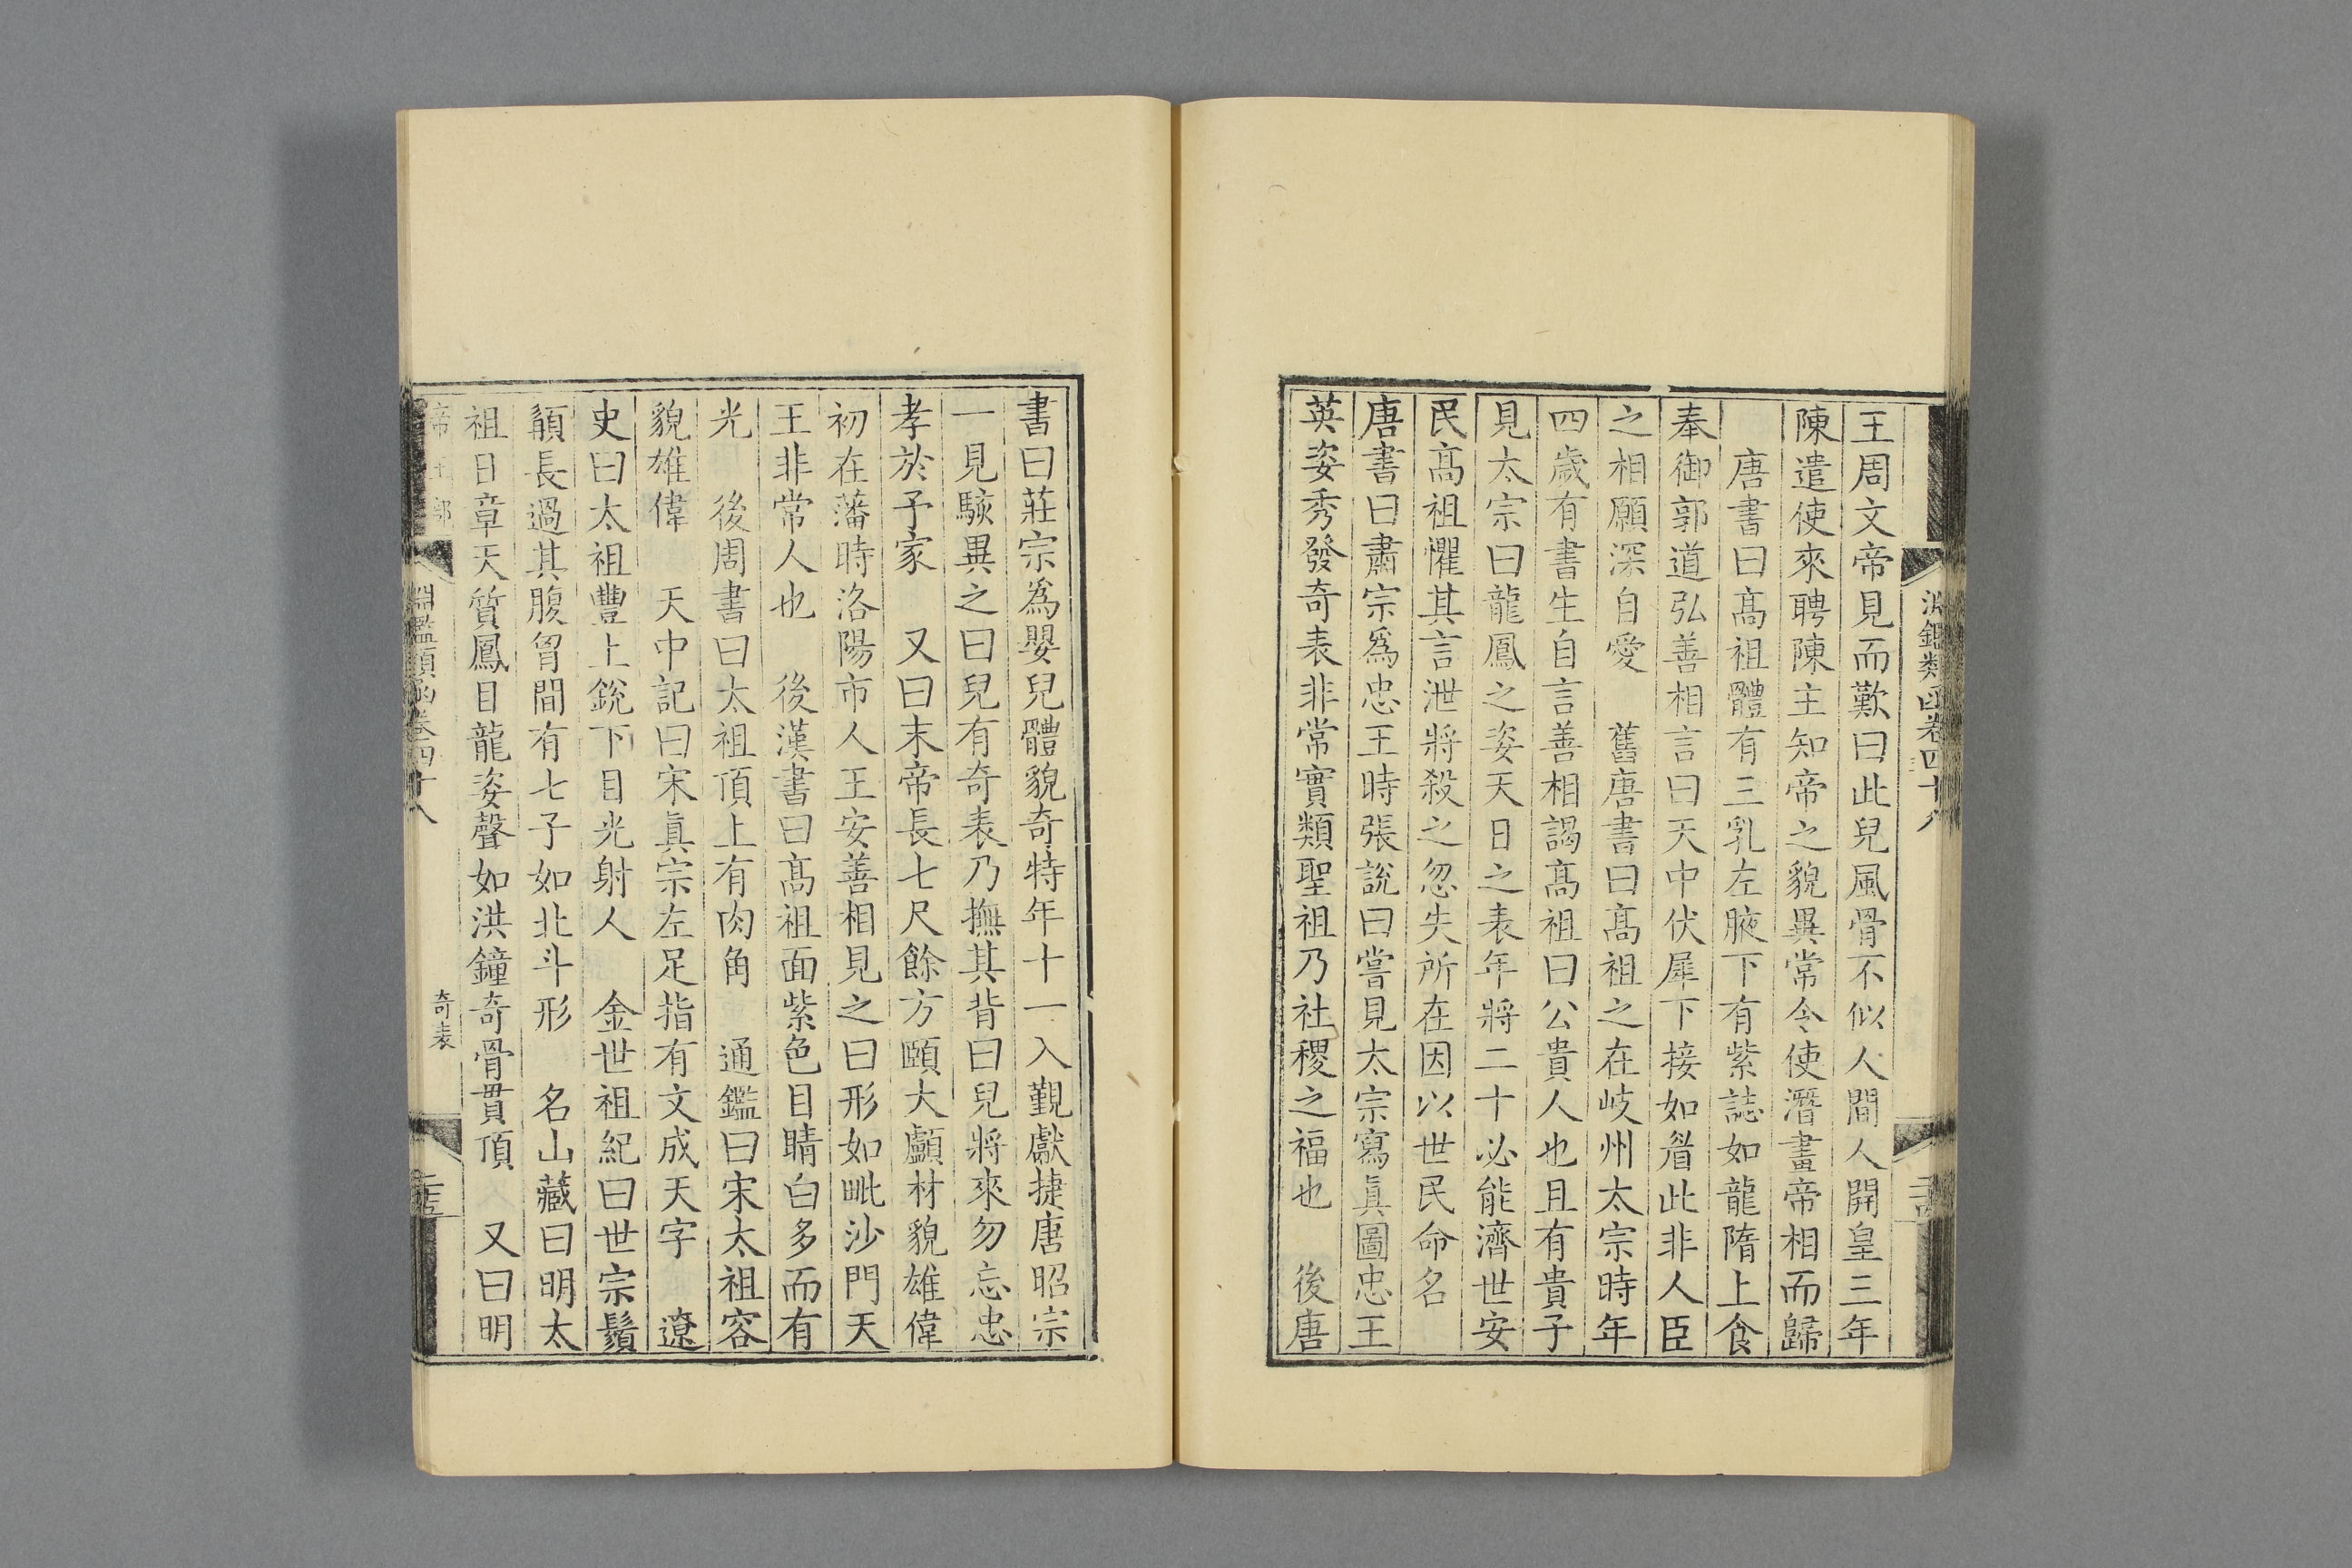 淵鑑類函卷四十八
王周文帝見而歎曰此兒風骨不似人間人開皇三年
陳遣使來聘陳主知帝之貌異常令使潛畫帝相而歸
唐書曰髙祖體有三乳左腋下有紫誌如龍隋上食
奉御郭道弘善相言曰天中伏犀下接如眉此非人臣
之相願深自愛　舊唐書曰髙祖之在岐州太宗時年
四歲有書生自言善相謁髙祖曰公貴人也且有貴子
見太宗曰龍鳳之姿天日之表年將二十必能濟世安
民髙祖懼其言泄將殺之忽失所在因以世民命名
唐書曰肅宗爲忠王時張說曰嘗見太宗寫眞圖忠王
英姿秀發奇表非常實類聖祖乃社稷之福也　後唐
書曰莊宗爲嬰兒體貌奇特年十一入覲獻捷唐昭宗
一見駭異之曰兒有奇表乃撫其背曰兒將來勿忘忠
孝於予家　又曰末帝長七尺餘方頤大顱材貌雄偉
初在藩時洛陽市人王安善相見之曰形如毗沙門天
王非常人也　後漢書曰髙祖面紫色目睛白多而有
光　後周書曰太祖頂上有肉角　通鑑曰宋太祖容
貌雄偉　天中記曰宋眞宗左足指有文成天字　遼
史曰太祖豐上銳下目光射人　金世祖紀曰世宗鬚
髯長過其腹胷間有七子如北斗形　名山藏曰明太
祖日章天質鳳目龍姿聲如洪鐘奇骨貫頂　又曰明
帝王部
淵鑑類函卷四十八
奇表